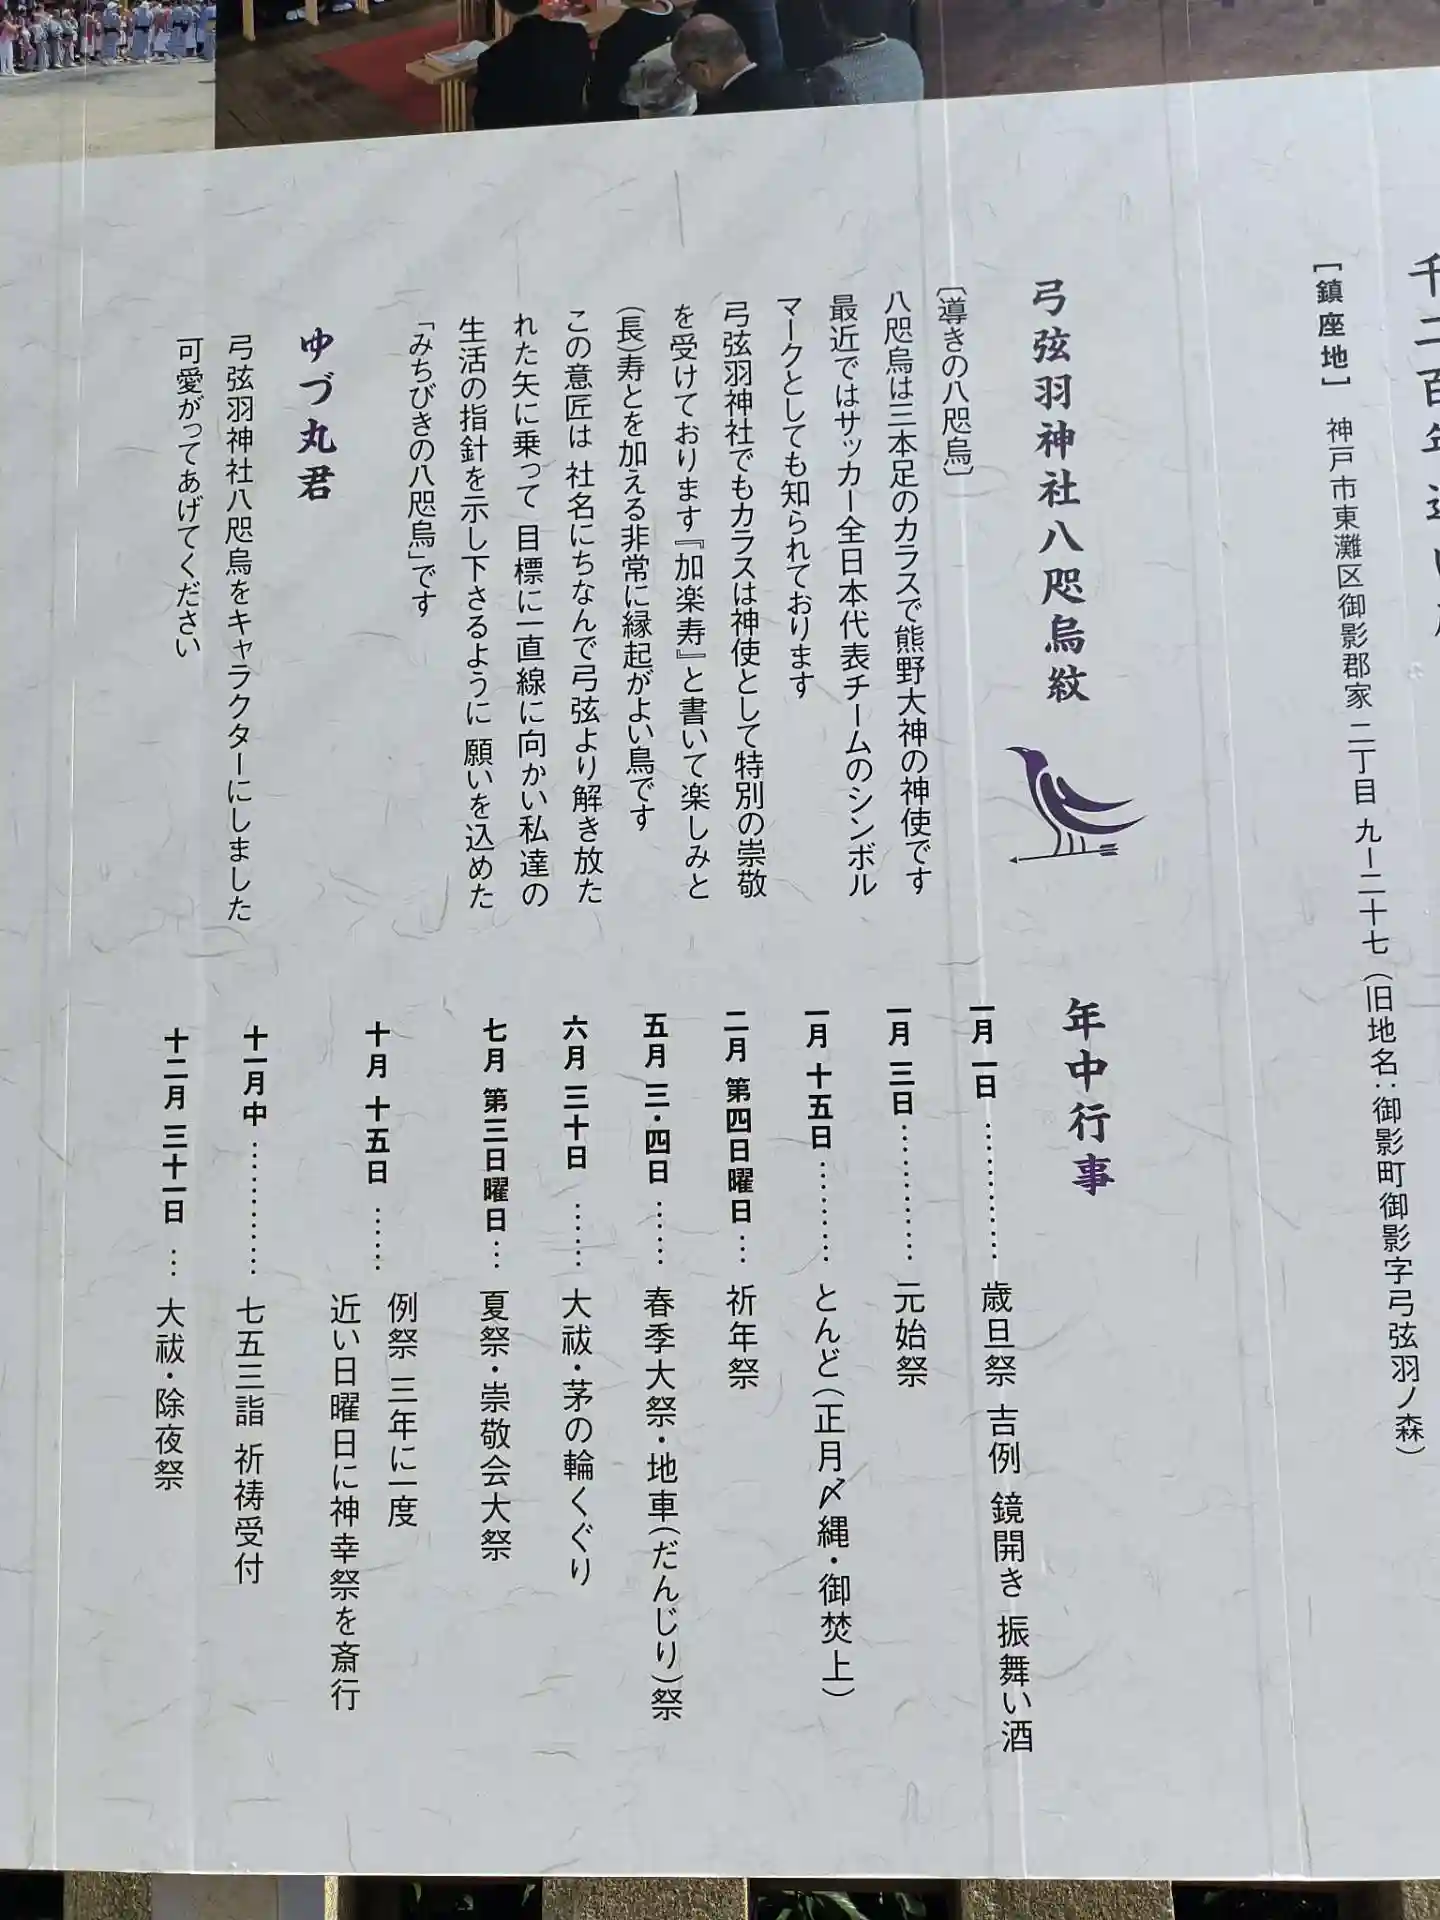 ［鎮座地］ 神戸市東灘区御影郡家 二丁目 九ー二十七 （旧地名：御影町御影字弓弦羽ノ森）
弓弦羽神社八咫烏紋
［導きの八咫烏］
八咫烏は三本足のカラスで熊野大神の神使です
最近ではサッカー全日本代表チームのシンボル
マークとしても知られております
弓弦羽神社でもカラスは神使として特別の崇敬
を受けております『加楽寿』と書いて楽しみと
（長）寿とを加える非常に縁起がよい鳥です
この意匠は 社名にちなんで弓弦より解き放た
れた矢に乗って 目標に一直線に向かい私達の
生活の指針を示し下さるように 願いを込めた
「みちびきの八咫烏」です
ゆづ丸君
弓弦羽神社八咫烏をキャラクターにしました
可愛がってあげてください
年中行事
一月 一日 ………… 歳旦祭 吉例 鏡開き 振舞い酒
一月 三日 ………… 元始祭
一月 十五日 ……… とんど（正月〆縄・御焚上）
二月 第四日曜日 … 祈年祭
五月 三・四日 …… 春季大祭・地車（だんじり）祭
六月 三十日 …… 大祓・茅の輪くぐり
七月 第三日曜日 … 夏祭・崇敬会大祭
十月 十五日 …… 例祭 三年に一度
近い日曜日に神幸祭を斎行
十一月中 ………… 七五三詣 祈祷受付
十二月 三十一日 … 大祓・除夜祭